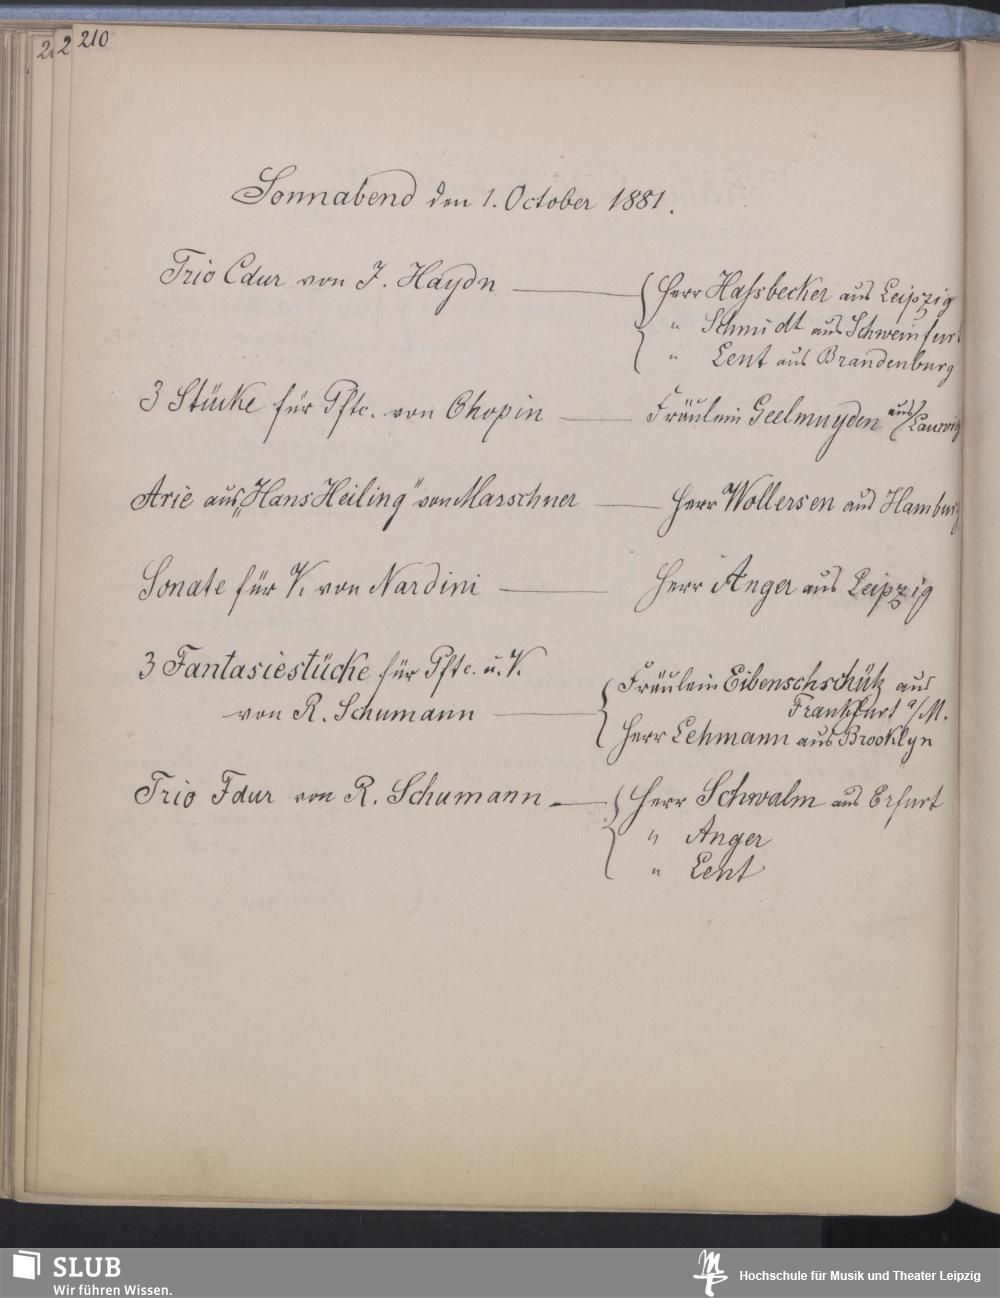 210
Sonnabend den 1. October 1881.
Trio Cdur von J. Haydn
Herr Hassbecker aus Leipzig
" Schmidt aus Schweinfurt
" Lent aus Brandenburg
3 Stücke für Pfte. von Chopin
Fräulein Geelmuyden aus Laurvig
Arie aus „Hans Heiling" von Marschner
Herr Wollersen aus Hamburg
Sonate für V. von Nardini
Herr Anger aus Leipzig
3 Fantasiestücke für Pfte. u. V.
von R. Schumann
Fräulein Eibenschschütz aus
Frankfurt a/M.
Herr Lehmann aus Brooklyn
Trio Fdur von R. Schumann
Herr Schwalm aus Erfurt
" Anger
" Lent
SLUB
Wir führen Wissen.
Hochschule für Musik und Theater Leipzig